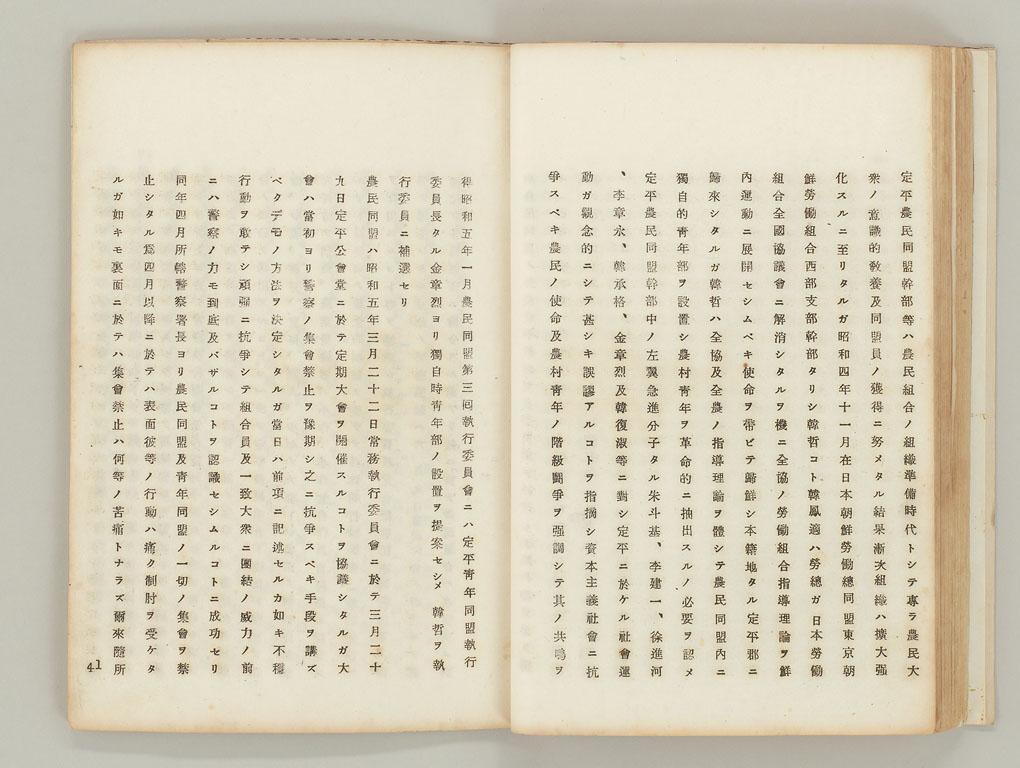 定平農民同盟幹部等ハ農民組合ノ組織準備時代トシテ專ラ農民大
衆ノ意識的敎養及同盟員ノ獲得ニ努メタル結果漸次組織ハ擴大强
化スルニ至リタルガ昭和四年十一月在日本朝鮮勞働總同盟東京朝
鮮勞働組合西部支部幹部タリシ韓哲コト韓鳳適ハ勞總ガ日本勞働
組合全國協議會ニ解消シタルヲ機ニ全協ノ勞働組合指導理論ヲ鮮
內運動ニ展開セシムベキ使命ヲ帶ビテ歸鮮シ本籍地タル定平郡ニ
歸來シタルガ韓哲ハ全協及全農ノ指導理論ヲ體シテ農民同盟內ニ
獨自的靑年部ヲ設置シ農村靑年ヲ革命的ニ抽出スルノ必要ヲ認メ
定平農民同盟幹部中ノ左翼急進分子タル朱斗基、李建一、徐進河
、李章永、韓承格、金章烈及韓復淑等ニ對シ定平ニ於ケル社會運
動ガ觀念的ニシテ甚シキ誤謬アルコトヲ指摘シ資本主義社會ニ抗
爭スベキ農民ノ使命及農村靑年ノ階級鬪爭ヲ强調シテ其ノ共鳴ヲ
得昭和五年一月農民同盟第三回執行委員會ニハ定平靑年同盟執行
委員長タル金章烈ヨリ獨自時靑年部ノ設置ヲ提案セシメ 韓哲ヲ執
行委員ニ補選セリ
農民同盟ハ昭和五年三月二十二日常務執行委員會ニ於テ三月二十
九日定平公會堂ニ於テ定期大會ヲ開催スルコトヲ協議シタルガ大
會ハ當初ヨリ警察ノ集會禁止ヲ豫期シ之ニ抗爭スベキ手段ヲ講ズ
ベタデモノ方法ヲ決定シタルガ當日ハ前項ニ記述セルカ如キ不穩
行動ヲ敢テシ頑强ニ抗爭シテ組合員及一致大衆ニ團結ノ威力ノ前
ニハ警察ノ力モ到底及バザルコトヲ認識セシムルコトニ成功セリ
同年四月所轄警察署長ヨリ農民同盟及靑年同盟ノ一切ノ集會ヲ禁
止シタル爲四月以降ニ於テハ表面彼等ノ行動ハ痛ク制肘ヲ受ケタ
ルガ如キモ裏面ニ於テハ集會禁止ハ何等ノ苦痛トナラズ爾來隨所
41